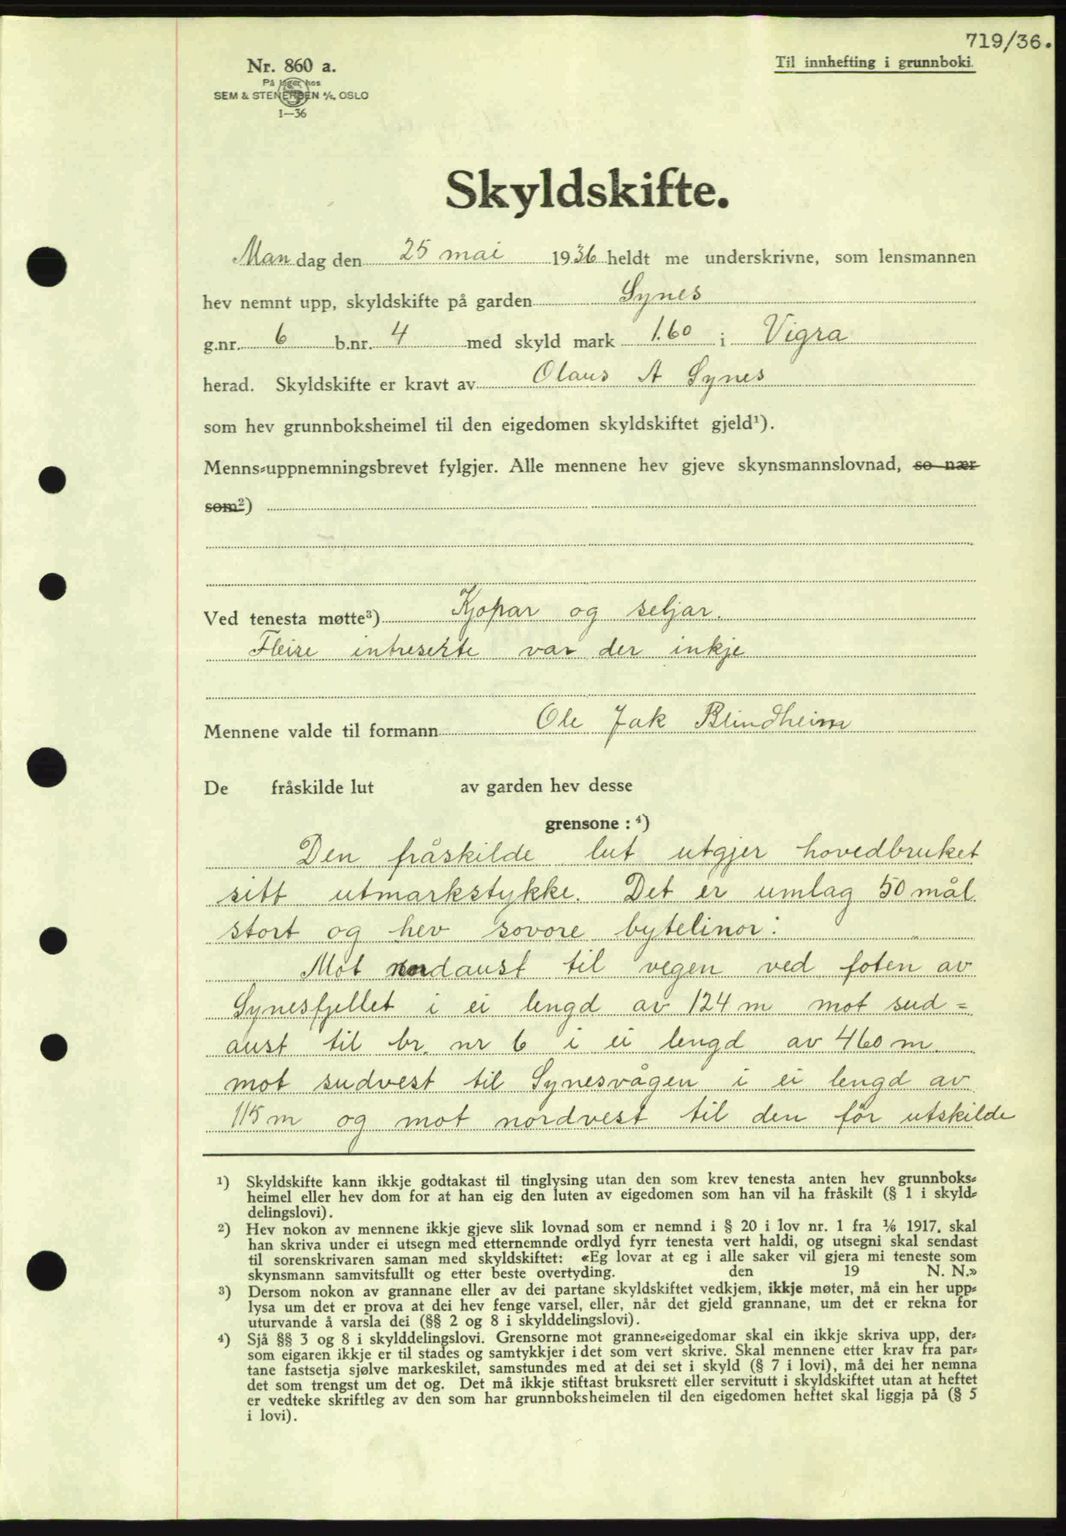 719/36.
Nr. 860 a.
Til innhefting i grunnboki.
På lager hos
SEM & STENERSEN A/S. OSLO
1—36
Skyldskifte.
Man dag den 25 mai 1936 heldt me underskrivne, som lensmannen
hev nemnt upp, skyldskifte på garden Synes
g.nr. 6 b.nr. 4 med skyld mark 1.60 i Vigra
herad. Skyldskifte er kravt av Olaus A Synes
som hev grunnboksheimel til den eigedomen skyldskiftet gjeld¹).
Menns-uppnemningsbrevet fylgjer. Alle mennene hev gjeve skynsmannslovnad, so nær
som²)
Ved tenesta møtte³) Kjøpar og seljar.
Fleire intreserte var der inkje
Mennene valde til formann Ole Jak Blindheim
De fråskilde lut av garden hev desse
grensone : ⁴)
Den fråskilde lut utgjer hovedbruket
sitt utmarkstykke. Det er umlag 50 mål
stort og hev sovore bytelinor:
Mot nordaust til vegen ved foten av
Synesfjellet i ei lengd av 124 m mot sud=
aust til br. nr 6 i ei lengd av 460 m.
mot sudvest til Synesvågen i ei lengd av
115 m og mot nordvest til den før utskilde
¹) Skyldskifte kann ikkje godtakast til tinglysing utan den som krev tenesta anten hev grunnboks-
heimel eller hev dom for at han eig den luten av eigedomen som han vil ha fråskilt (§ 1 i skyld-
delingslovi).
²) Hev nokon av mennene ikkje gjeve slik lovnad som er nemnd i § 20 i lov nr. 1 fra 1/6 1917, skal
han skriva under ei utsegn med etternemnde ordlyd fyrr tenesta vert haldi, og utsegni skal sendast
til sorenskrivaren saman med skyldskiftet: «Eg lovar at eg i alle saker vil gjera mi teneste som
skynsmann samvitsfullt og etter beste overtyding. den 19 N. N.»
³) Dersom nokon av grannane eller av dei partane skyldskiftet vedkjem, ikkje møter, må ein her upp-
lysa um det er prova at dei hev fenge varsel, eller, når det gjeld grannane, um det er rekna for
uturvande å varsla dei (§§ 2 og 8 i skylddelingslovi).
⁴) Sjå §§ 3 og 8 i skylddelingslovi. Grensorne mot granne-eigedomar skal ein ikkje skriva upp, der-
som eigaren ikkje er til stades og samtykkjer i det som vert skrive. Skal mennene etter krav fra par-
tane fastsetja sjølve markeskilet, samstundes med at dei set i skyld (§ 7 i lovi), må dei her nemna
det som trengst um det og. Det må ikkje stiftast bruksrett eller servitutt i skyldskiftet utan at heftet
er vedteke skriftleg av den som har grunnboksheimelen til den eigedomen heftet skal liggja på (§ 5
i lovi).